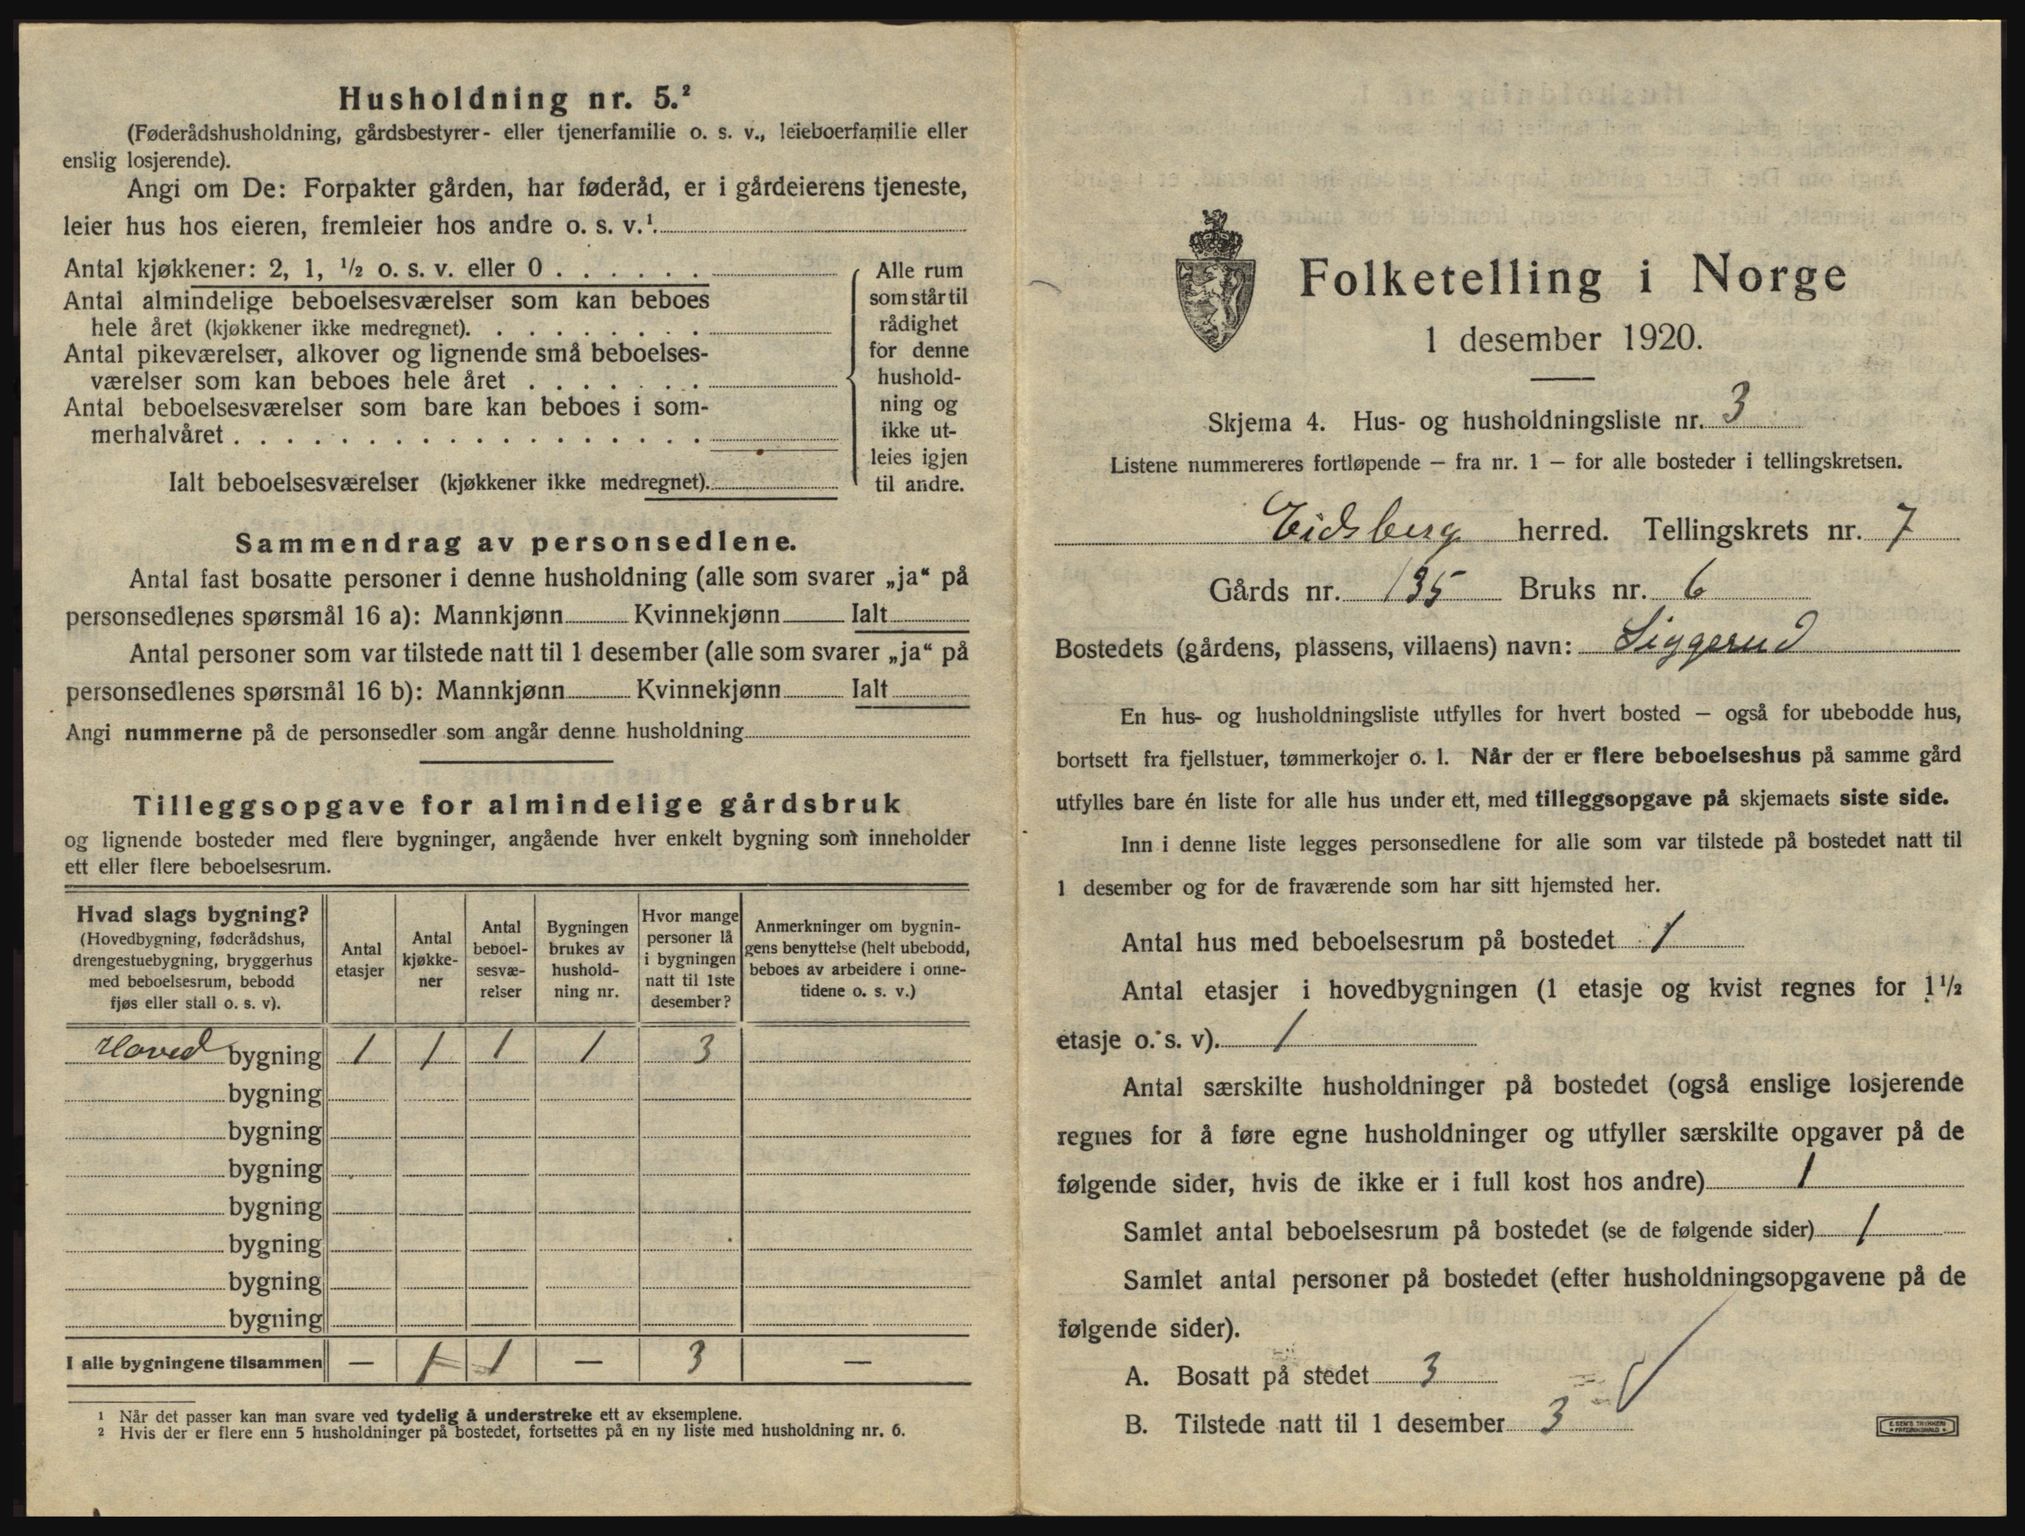 Husholdning nr. 5.²
(Føderådshusholdning, gårdsbestyrer- eller tjenerfamilie o. s. v., leieboerfamilie eller
enslig losjerende).
Angi om De: Forpakter gården, har føderåd, er i gårdeierens tjeneste,
leier hus hos eieren, fremleier hos andre o. s. v.¹.
Antal kjøkkener: 2, 1, ½ o. s. v. eller 0 . . . . . .
Antal almindelige beboelsesværelser som kan beboes
hele året (kjøkkener ikke medregnet). . . . . . . . .
Antal pikeværelser, alkover og lignende små beboelses-
værelser som kan beboes hele året . . . . . . .
Antal beboelsesværelser som bare kan beboes i som-
merhalvåret . . . . . . . . . . . . . . . . . .
Ialt beboelsesværelser (kjøkkener ikke medregnet).
Alle rum
som står til
rådighet
for denne
hushold-
ning og
ikke ut-
leies igjen
til andre.
Sammendrag av personsedlene.
Antal fast bosatte personer i denne husholdning (alle som svarer „ja“ på
personsedlenes spørsmål 16 a): Mannkjønn Kvinnekjønn Ialt
Antal personer som var tilstede natt til 1 desember (alle som svarer „ja“ på
personsedlenes spørsmål 16 b): Mannkjønn Kvinnekjønn Ialt
Angi nummerne på de personsedler som angår denne husholdning
Tilleggsopgave for almindelige gårdsbruk
og lignende bosteder med flere bygninger, angående hver enkelt bygning som inneholder
ett eller flere beboelsesrum.
Hvad slags bygning?
(Hovedbygning, føderådshus,
drengestuebygning, bryggerhus
med beboelsesrum, bebodd
fjøs eller stall o. s. v).
Antal
etasjer
Antal
kjøkke-
ner
Antal
beboel-
sesvæ-
relser
Bygningen
brukes av
hushold-
ning nr.
Hvor mange
personer lå
i bygningen
natt til 1ste
desember?
Anmerkninger om bygnin-
gens benyttelse (helt ubebodd,
beboes av arbeidere i onne-
tidene o. s. v.)
Hoved bygning 1 1 1 1 3
bygning
bygning
bygning
bygning
bygning
bygning
bygning
I alle bygningene tilsammen — 1 1 — 3 —
¹ Når det passer kan man svare ved tydelig å understreke ett av eksemplene.
² Hvis der er flere enn 5 husholdninger på bostedet, fortsettes på en ny liste med husholdning nr. 6.
Folketelling i Norge
1 desember 1920.
Skjema 4. Hus- og husholdningsliste nr. 3
Listene nummereres fortløpende — fra nr. 1 — for alle bosteder i tellingskretsen.
Eidsberg herred. Tellingskrets nr. 7
Gårds nr. 135 Bruks nr. 6
Bostedets (gårdens, plassens, villaens) navn: Siggerud
En hus- og husholdningsliste utfylles for hvert bosted — også for ubebodde hus,
bortsett fra fjellstuer, tømmerkojer o. l. Når der er flere beboelseshus på samme gård
utfylles bare én liste for alle hus under ett, med tilleggsopgave på skjemaets siste side.
Inn i denne liste legges personsedlene for alle som var tilstede på bostedet natt til
1 desember og for de fraværende som har sitt hjemsted her.
Antal hus med beboelsesrum på bostedet 1
Antal etasjer i hovedbygningen (1 etasje og kvist regnes for 1½
etasje o. s. v). 1
Antal særskilte husholdninger på bostedet (også enslige losjerende
regnes for å føre egne husholdninger og utfyller særskilte opgaver på de
følgende sider, hvis de ikke er i full kost hos andre) 1
Samlet antal beboelsesrum på bostedet (se de følgende sider) 1
Samlet antal personer på bostedet (efter husholdningsopgavene på de
følgende sider).
A. Bosatt på stedet 3
B. Tilstede natt til 1 desember 3
E. SEM'S TRYKKERI
FREDRIKSHALD